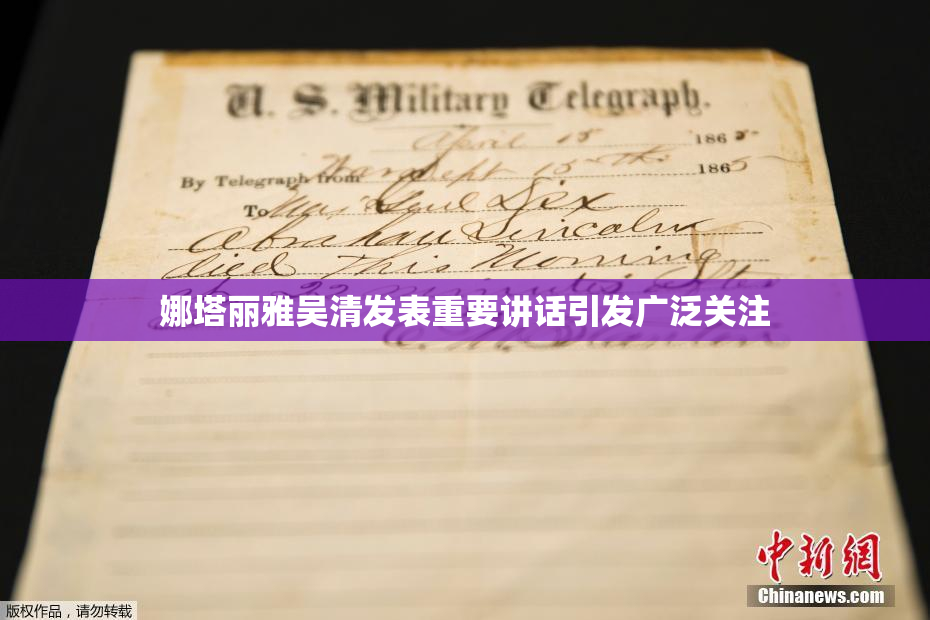 U. S. Military Telegraph.
April 15 1865
By Telegraph from War Dept 15th 1865
To Maj Genl Dix
Abraham Lincoln
died This Morning
at 22 minutes after
娜塔丽雅吴清发表重要讲话引发广泛关注
E. M. Stanton
中新網
Chinanews.com
版权作品，请勿转载